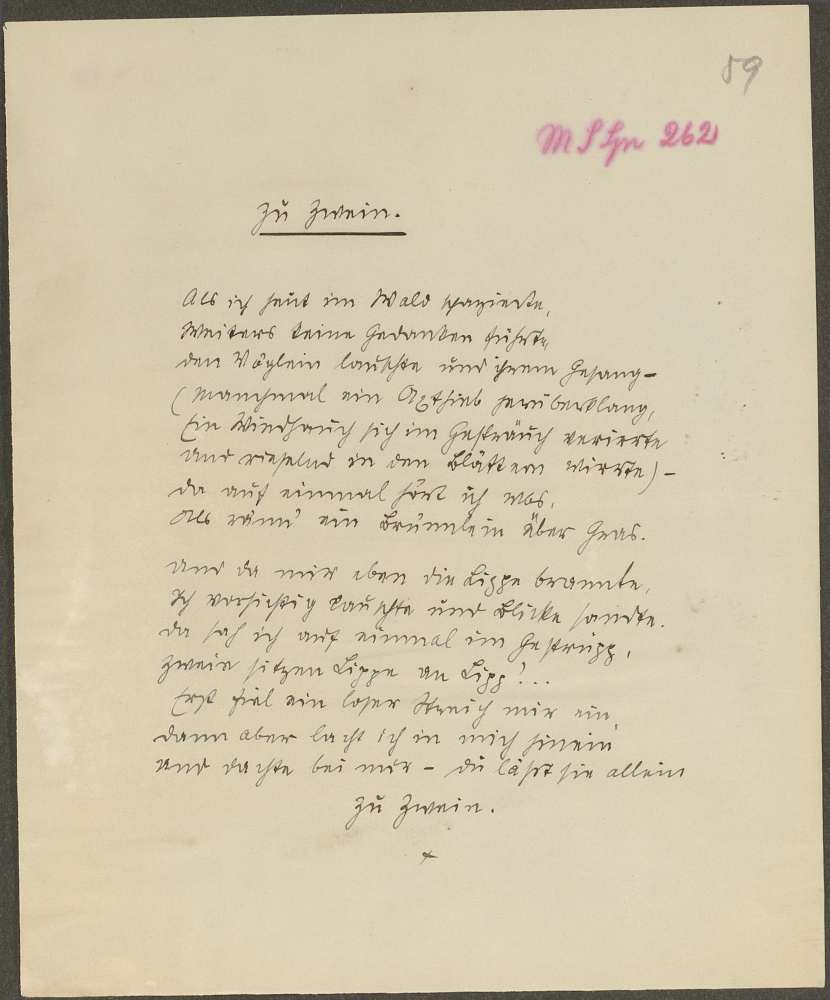 59
M S Lyr 262
Zu Zwein.
Als ich heut im Wald spazierte,
Weiters keine Gedanken führte,
den Vöglein lauschte und ihrem Gesang –
(manchmal ein Axthieb herüberklang,
Ein Windhauch sich im Gesträuch verirrte
und rieselnd in den Blättern wirrte) –
da auf einmal hört ich was,
Als ränn' ein Brünnlein über Gras.
Und da mir eben die Lippe brannte,
Ich vorsichtig lauschte und Blicke sandte.
Da sah ich auf einmal im Gestrüpp,
Zwein sitzen Lippe an Lipp'!..
Erst fiel ein loser Streich mir ein,
dann aber lacht ich in mich hinein
und dachte bei mir – du läßt sie allein
Zu Zwein.